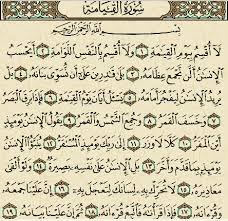 سُورَةُ الْقِيَامَةِ
بِسْمِ اللَّهِ الرَّحْمَٰنِ الرَّحِيمِ
لَا أُقْسِمُ بِيَوْمِ الْقِيَٰمَةِ ١ وَلَا أُقْسِمُ بِالنَّفْسِ اللَّوَّامَةِ ٢ أَيَحْسَبُ
الْإِنسَٰنُ أَلَّن نَّجْمَعَ عِظَامَهُ ٣ بَلَىٰ قَٰدِرِينَ عَلَىٰ أَن نُّسَوِّيَ بَنَانَهُ ٤ بَلْ
يُرِيدُ الْإِنسَٰنُ لِيَفْجُرَ أَمَامَهُ ٥ يَسْـَٔلُ أَيَّانَ يَوْمُ الْقِيَٰمَةِ ٦ فَإِذَا بَرِقَ الْبَصَرُ
٧ وَخَسَفَ الْقَمَرُ ٨ وَجُمِعَ الشَّمْسُ وَالْقَمَرُ ٩ يَقُولُ الْإِنسَٰنُ يَوْمَئِذٍ
أَيْنَ الْمَفَرُّ ١٠ كَلَّا لَا وَزَرَ ١١ إِلَىٰ رَبِّكَ يَوْمَئِذٍ الْمُسْتَقَرُّ ١٢ يُنَبَّؤُا الْإِنسَٰنُ
يَوْمَئِذٍ بِمَا قَدَّمَ وَأَخَّرَ ١٣ بَلِ الْإِنسَٰنُ عَلَىٰ نَفْسِهِ بَصِيرَةٌ ١٤ وَلَوْ أَلْقَىٰ
مَعَاذِيرَهُ ١٥ لَا تُحَرِّكْ بِهِ لِسَانَكَ لِتَعْجَلَ بِهِ ١٦ إِنَّ عَلَيْنَا جَمْعَهُ
وَقُرْءَانَهُ ١٧ فَإِذَا قَرَأْنَٰهُ فَاتَّبِعْ قُرْءَانَهُ ١٨ ثُمَّ إِنَّ عَلَيْنَا بَيَانَهُ ١٩